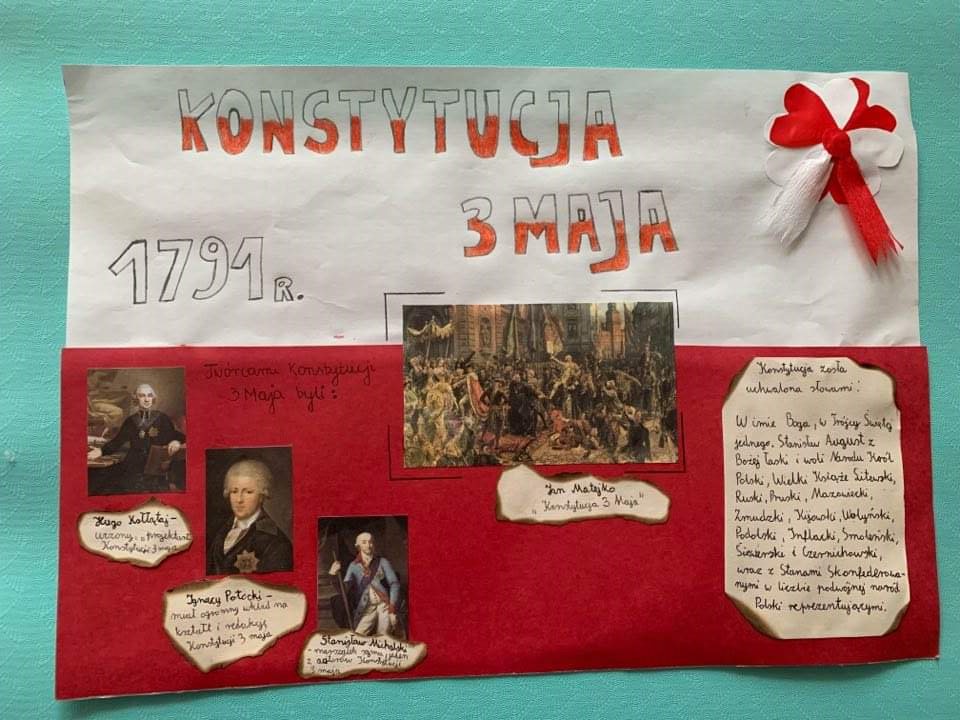 KONSTYTUCJA
3 MAJA
1791 R.
Twórcami Konstytucji
3 Maja byli:
Hugo Kołłątaj -
uczony, "projektant
Konstytucji 3 maja
Ignacy Potocki -
miał ogromny wkład na
kształt i redakcję
Konstytucji 3 maja
Stanisław
- marszałek sejmu, jeden
z autorów Konstytucji
3 maja
Jan Matejko
"Konstytucja 3 Maja"
Konstytucja została
uchwalona słowami:
W imię Boga, w Trójcy Świętej
jednego. Stanisław August z
Bożej łaski i woli Narodu Król
Polski, Wielki Książe Litewski,
Ruski, Pruski, Mazowiecki,
Żmudzki, Kijowski, Wołyński,
Podolski, Inflacki, Smoleński,
Siewierski i Czernichowski,
wraz z Stanami Skonfederowa-
nymi w liczbie podwójnej naród
Polski reprezentującymi.